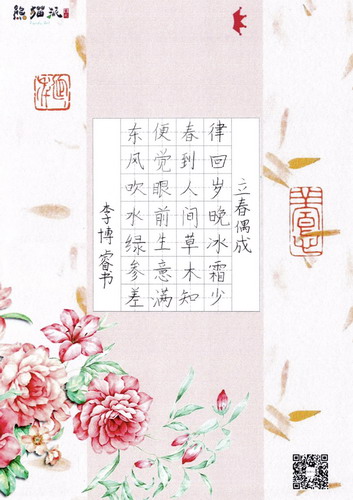 熊猫派
立春偶成
律回岁晚冰霜少
春到人间草木知
便觉眼前生意满
东风吹水绿参差
李博睿书